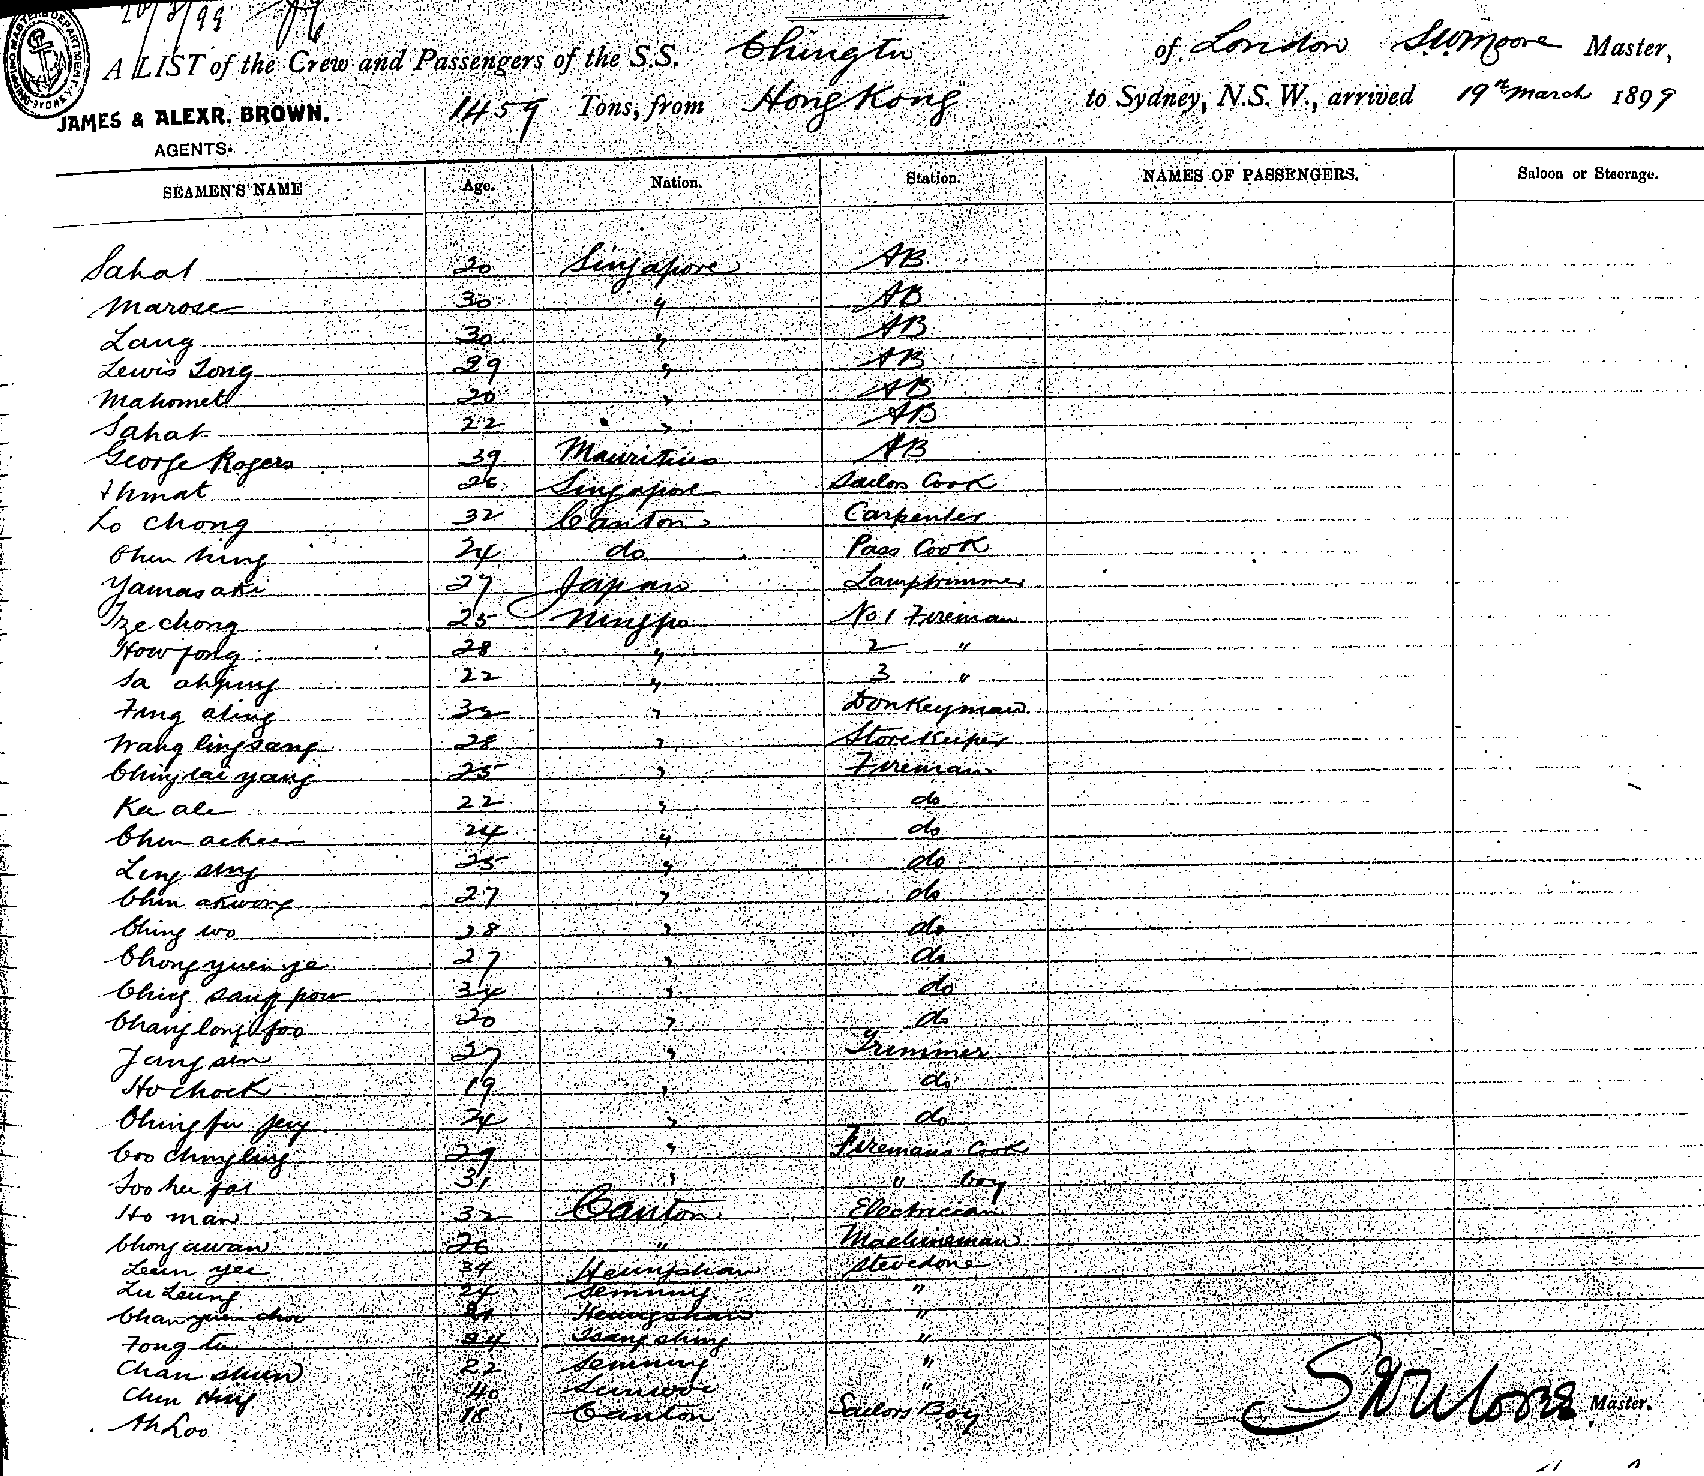 20/3/99
A LIST of the Crew and Passengers of the S.S. Chingtu of London SW Moore Master,
JAMES & ALEXR. BROWN. 1459 Tons, from Hong Kong to Sydney, N.S.W., arrived 19th March 1899
AGENTS.
SEAMEN'S NAME Age. Nation. Station. NAMES OF PASSENGERS. Saloon or Steerage.
Sahat 20 Singapore AB
Marose 30 " AB
Lang 30 " AB
Lewis Tong 29 " AB
Mahomet 20 " AB
Sahat 22 " AB
George Rogers 39 Mauritius AB
Ahmat 26 Singapore Sailors Cook
Lo Chong 32 Canton Carpenter
Chen hing 24 do Pass Cook
Yamasaki 27 Japan Lamptrimmer
Tze chong 25 Ningpo No 1 Fireman
How fong 28 " 2 "
Sa ahping 22 " 3 "
Fing aling 32 " Donkeyman
Wang ling sang 28 " Storekeeper
Ching tai yang 25 " Fireman
Ke ale 22 " do
Chen achee 24 " do
Ling sing 25 " do
Chin akwong 27 " do
Ching wo 28 " do
Chong yuen ye 27 " do
Ching sang pow 34 " do
Chang long foo 20 " do
Jang sen 27 " Trimmer
Ho chock 19 " do
Ching fu jey 24 " do
Coo ching ling 29 " Firemans Cook
Too hee fat 31 " " boy
Ho man 32 Canton Electrician
Chong awan 26 " Machineman
Leen yee 34 Heungshan Stevedore
Lu Leung 24 Senning "
Chan yuen choi Heungshan "
Fong tu 24 Tsangshing "
Chan shun 22 Senning "
Chen Hing 40 Sunwoi "
Ah Loo 18 Canton Sailors Boy
SW Moore Master.